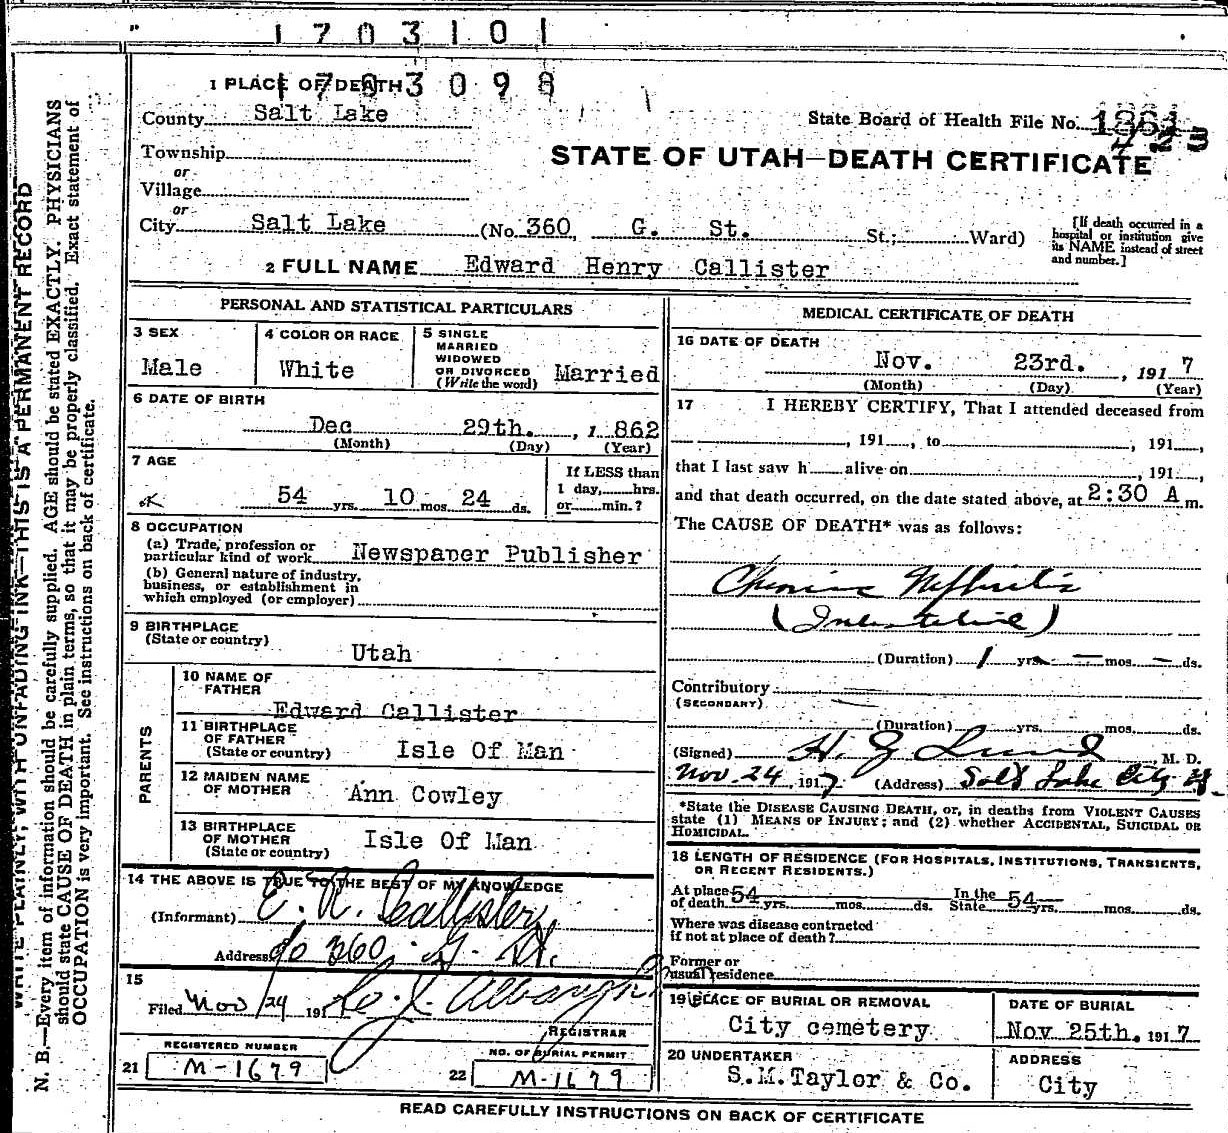 1703101
1 PLACE OF DEATH
1703098
County Salt Lake
State Board of Health File No.
Township
or
Village
or
City Salt Lake (No. 360 G. St. St.; Ward)
STATE OF UTAH—DEATH CERTIFICATE
[If death occurred in a
hospital or institution give
its NAME instead of street
and number.]
2 FULL NAME Edward Henry Callister
PERSONAL AND STATISTICAL PARTICULARS
3 SEX
Male
4 COLOR OR RACE
White
5 SINGLE
MARRIED
WIDOWED
OR DIVORCED
(Write the word) Married
6 DATE OF BIRTH
Dec 29th. , 1 862
(Month) (Day) (Year)
7 AGE
54 yrs. 10 mos. 24 ds.
If LESS than
1 day, hrs.
or min.?
8 OCCUPATION
(a) Trade, profession or
particular kind of work Newspaper Publisher
(b) General nature of industry,
business, or establishment in
which employed (or employer)
9 BIRTHPLACE
(State or country)
Utah
PARENTS
10 NAME OF
FATHER
Edward Callister
11 BIRTHPLACE
OF FATHER
(State or country) Isle Of Man
12 MAIDEN NAME
OF MOTHER Ann Cowley
13 BIRTHPLACE
OF MOTHER
(State or country) Isle Of Man
14 THE ABOVE IS TRUE TO THE BEST OF MY KNOWLEDGE
(Informant) Callister
Address 360 G. St.
15
Filed Nov 24 191
REGISTRAR
REGISTERED NUMBER
21 M-1679
NO. OF BURIAL PERMIT
22 M-1679
MEDICAL CERTIFICATE OF DEATH
16 DATE OF DEATH
Nov. 23rd. , 191 7
(Month) (Day) (Year)
17 I HEREBY CERTIFY, That I attended deceased from
, 191 , to , 191 ,
that I last saw h alive on , 191 ,
and that death occurred, on the date stated above, at 2:30 A m.
The CAUSE OF DEATH* was as follows:
Chronic Nephritis
(Interstitial)
(Duration) 1 yrs. — mos. — ds.
Contributory
(SECONDARY)
(Duration) yrs. mos. ds.
(Signed) H. Lund M. D.
Nov 24, 1917 (Address) Salt Lake City
*State the DISEASE CAUSING DEATH, or, in deaths from VIOLENT CAUSES
state (1) MEANS OF INJURY; and (2) whether ACCIDENTAL, SUICIDAL OR
HOMICIDAL.
18 LENGTH OF RESIDENCE (FOR HOSPITALS, INSTITUTIONS, TRANSIENTS,
OR RECENT RESIDENTS.)
At place
of death 54 yrs. mos. ds. In the
State 54 yrs. mos. ds.
Where was disease contracted
if not at place of death?
Former or
usual residence
19 PLACE OF BURIAL OR REMOVAL
City cemetery
DATE OF BURIAL
Nov 25th. 191 7
20 UNDERTAKER
S.M.Taylor & Co.
ADDRESS
City
READ CAREFULLY INSTRUCTIONS ON BACK OF CERTIFICATE
WRITE PLAINLY, WITH UNFADING INK—THIS IS A PERMANENT RECORD
N. B.—Every item of information should be carefully supplied. AGE should be stated EXACTLY. PHYSICIANS
should state CAUSE OF DEATH in plain terms, so that it may be properly classified. Exact statement of
OCCUPATION is very important. See instructions on back of certificate.